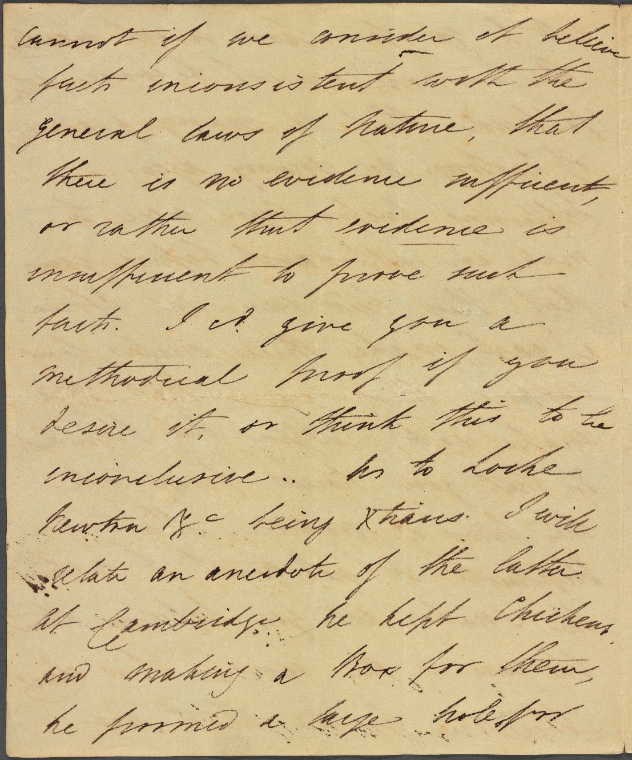 cannot if we consider it believe
facts inconsistent with the
general laws of Nature, that
there is no evidence sufficient,
or rather that evidence is
insufficient to prove such
facts. I cd. give you a
methodical proof if you
desire it, or think this to be
inconclusive .. As to Locke
Newton &c being Xtians. I will
relate an anecdote of the latter
at Cambridge he kept Chickens,
and making a Box for them,
he formed a large hole for